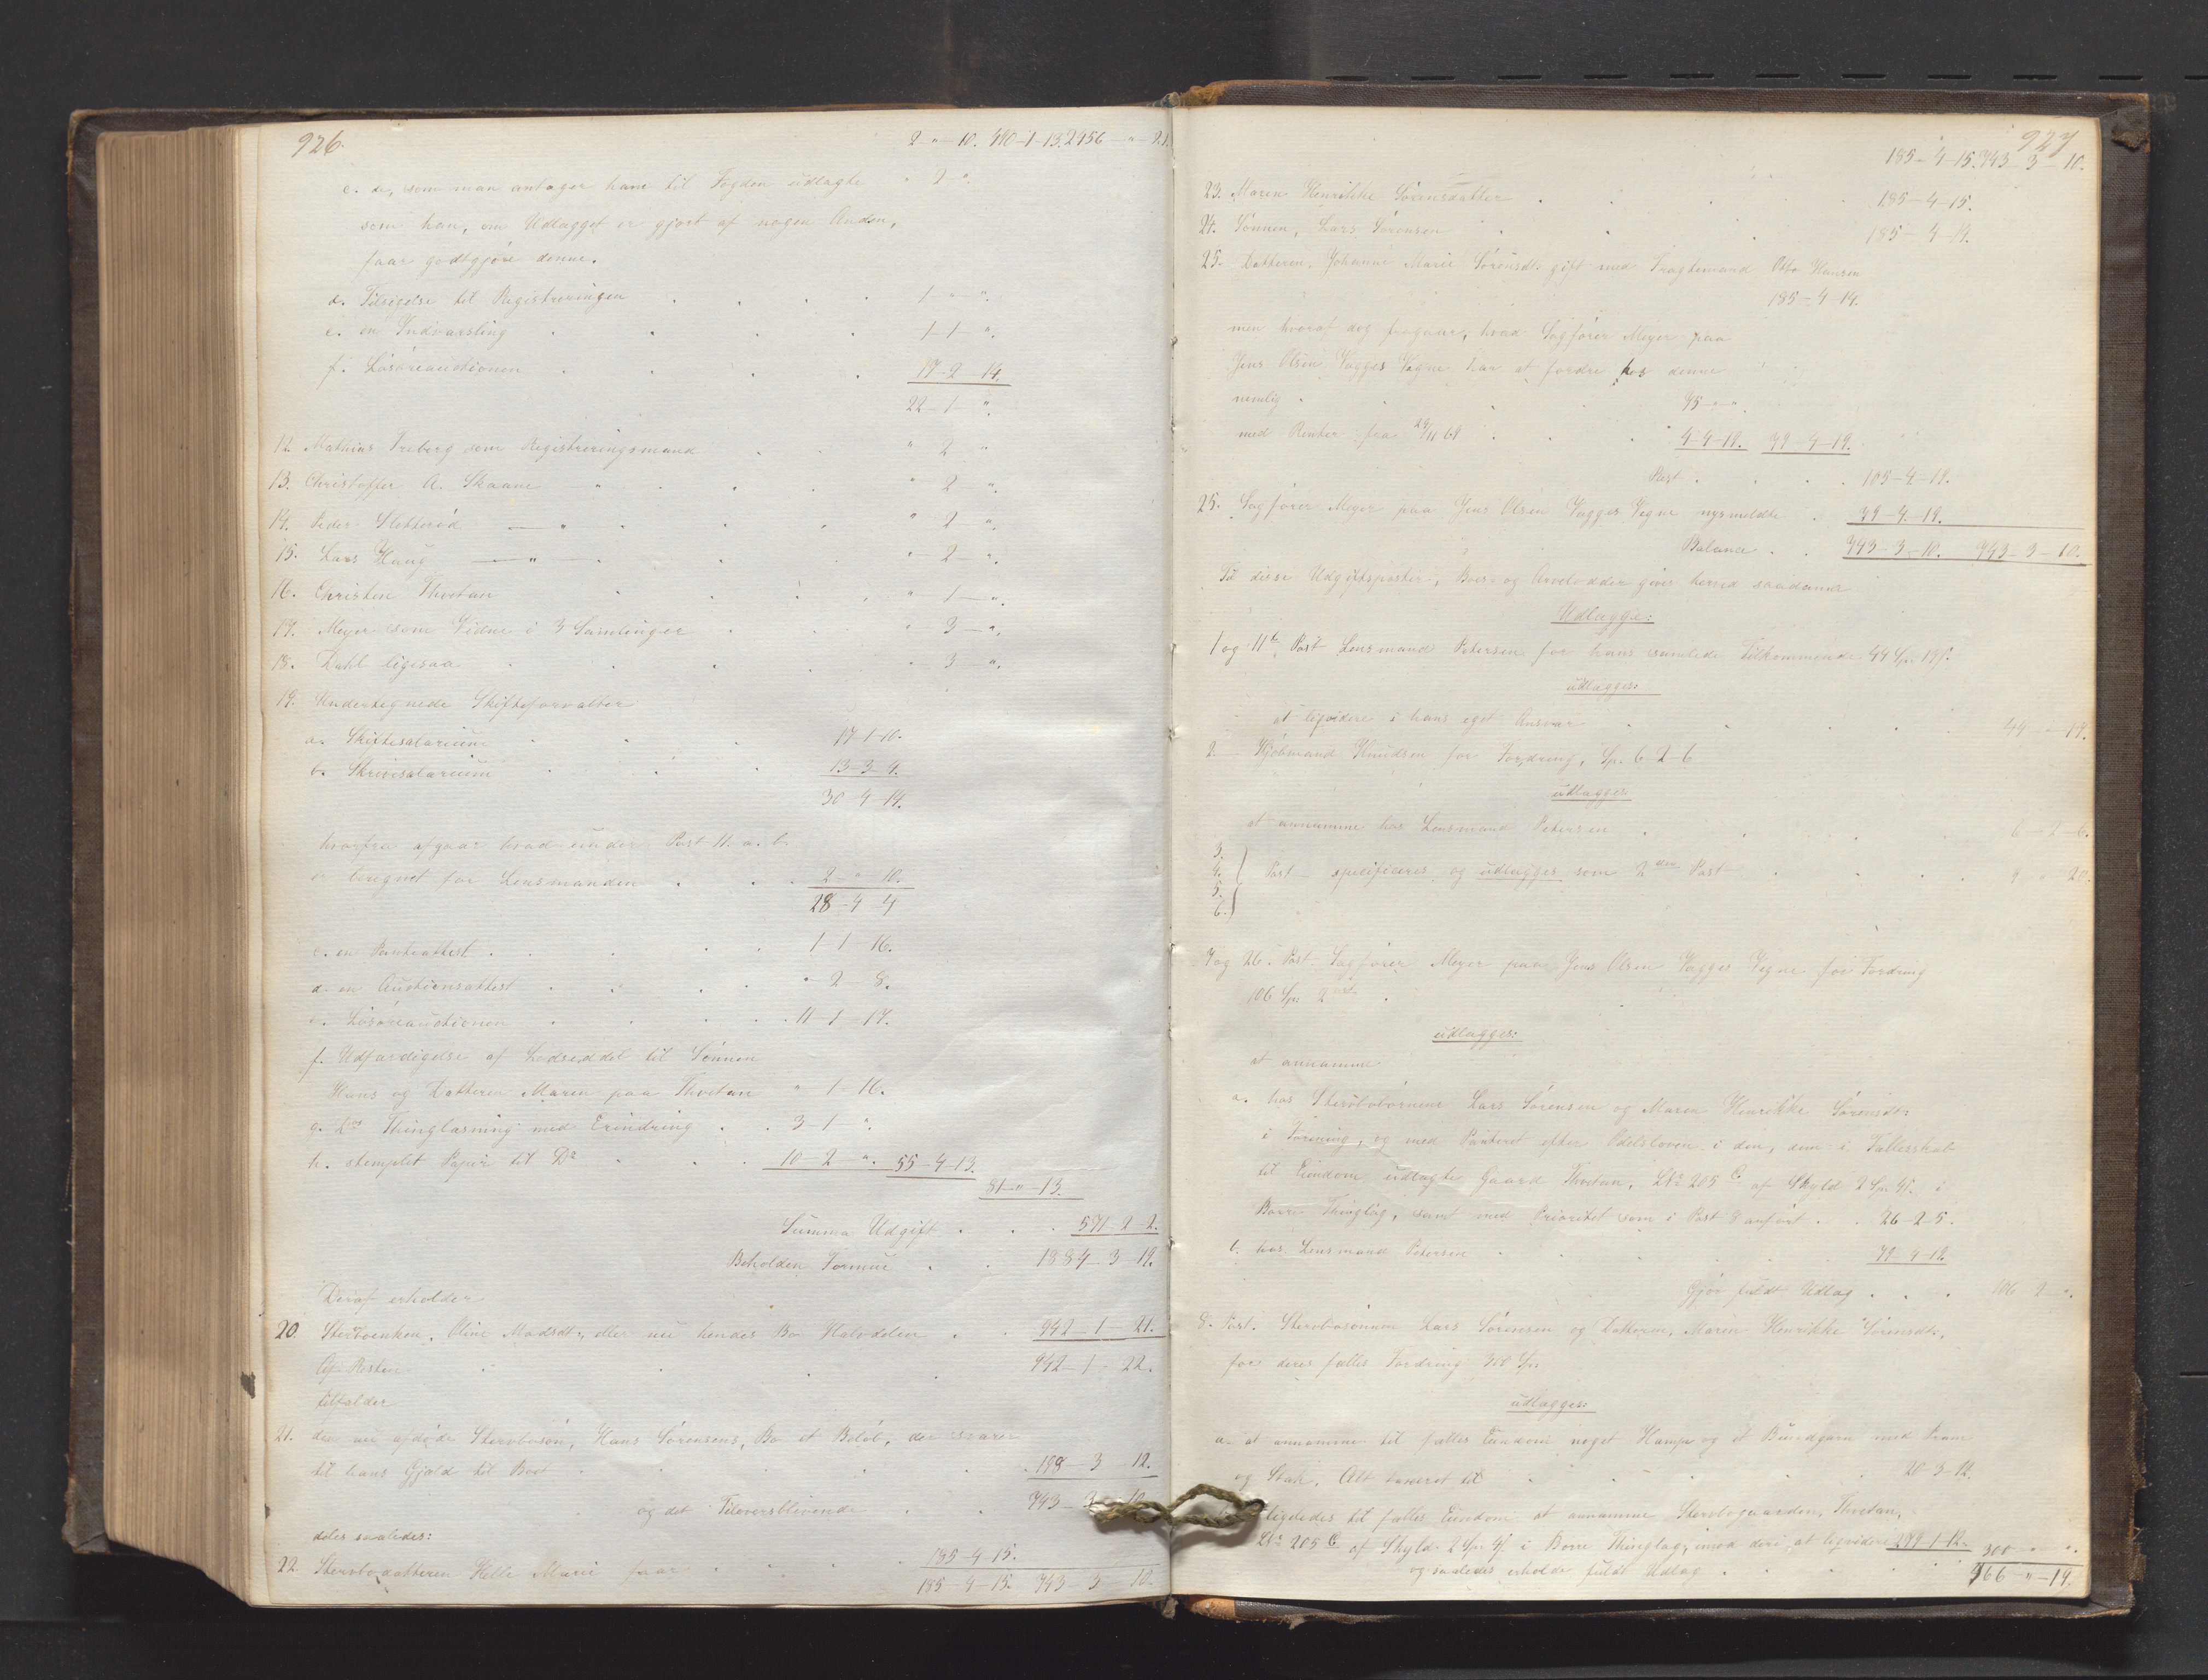 926.
2 - " - 10. 490-1-13. 2456 - " - 21.
c. de, som man antager have til Fogden udlagte " 2 - ".
som han, om Udlægget er gjort af nogen Anden,
faar godtgjøre denne.
d. Tilsigelse til Registreringen . . . . 1 - " - ".
e. en Indvarsling . . . . 1 - 1 - ".
f. Løsøreauctionen . . . . 17-2-14.
22-1-".
12. Mathias Freberg som Registreringsmand . . " 2 - "
13. Christoffer A. Skaane - " - . . . " 2 - ".
14. Peder Sletterød - " - . . . " 2 - ".
15. Lars Haug - " - . . . " - 2 - ".
16. Christen Thvetan . . . . " 1 - ".
17. Meyer som Vidne i 3 Samlinger . . . " 3 - ".
18. Dahl ligesaa . . . . " - 3 - ".
19. Undertegnede Skifteforvalter
a. Skiftesalarium . . . 17-1-10.
b. Skrivesalarium . . . 13-3-4.
30-4-14.
hvorfra afgaar hvad under Post 11. a. b.
er beregnet for Lensmanden . . . 2 - " - 10.
28-4-4
c. en Panteattest . . . . 1-1-16.
d. en Auctionsattest . . . . " 2-8.
e. Løsøreauctionen . . . . 11-1-17.
f. Udfærdigelse af Lodseddel til Sønnen
Hans og Datteren Maren paa Thvetan " - 1-16.
g. D's Thinglæsning med Erindring . . 3-1-".
h. stemplet Papir til Do . . . 10-2-". 55-4-13.
81-"-13.
Summa Udgift . . . 571-2-2.
Beholden Formue . . 1884-3-19.
Deraf erholder
20. Sterboenken, Oline Madsdt., eller nu hendes Bo Halvdelen . . 942-1-21.
Af Resten . . . 942-1-22.
tilfalder
21. den nu afdøde Sterbosøn, Hans Sørensens, Bo et Beløb, der svarer
til hans Gjæld til Boet . . . . 198-3-12.
og det Tiloversblivende . . 743-3-10.
deles saaledes:
22. Sterbodatteren Helle Marie faar . . . 185-4-15.
185-4-15. 743-3-10.
927
185-4-15. 743-3-10.
23. Maren Henrikke Sørensdatter . . . . 185-4-15.
24. Sønnen, Lars Sørensen . . . 185-4-14.
25. Datteren, Johanne Marie Sørensdt. gift med Fragtemand Otto Hansen
185-4-14.
men hvoraf dog fragaar, hvad Sagfører Meyer paa
Jens Olsen Vagges Vegne har at fordre hos denne
nemlig . . . 75-"-".
med Renter fra 29/11 69 . . . 4-4-19. 79-4-19.
Rest . . . . 105-4-19.
25. Sagfører Meyer paa Jens Olsen Vagges Vegne nysmeldte . 79-4-19.
Balance . . 743-3-10. 743-3-10.
Til disse Udgiftsposter, Boes- og Arvelodder gives herved saadanne
Udlægge:
1 og 11te Post Lensmand Petersen for hans samlede Tilkommende 44 Sp. 19 s.
udlægges:
at liqvidere i hans eget Ansvar . . . . 44-"-19.
2 Kjøbmand Knudsen for Fordring, Sp. 6-2-6
udlægges
at annamme hos Lensmand Petersen . . . . 6-2-6.
3.
4. Post specificeres og udlægges som 2den Post . . . . 9 " 20.
5.
6.
7 og 26. Post. Sagfører Meyer paa Jens Olsen Vagges Vegne for Fordring
106 Sp. 2 ort .
udlægges:
at annamme
a. hos Sterbobørnene Lars Sørensen og Maren Henrikke Sørensdt.
i Forening, og med Panteret efter Odelsloven i den, dem i Fællesskab
til Eiendom udlagte Gaard Thvetan, LNo 205 C af Skyld 2 Sp. 4 s. i
Borre Thinglag, samt med Prioritet som i Post 8 anført . . 26-2-5.
b. hos Lensmand Petersen . . . . 79-4-19.
Gjør fuldt Udlæg . . . 106 2 ".
8. Post. Sterbosønnen Lars Sørensen og Datteren, Maren Henrikke Sørensdt.,
for deres fælles Fordring 300 Sp.
udlægges:
a. at annamme til fælles Eiendom noget Hamp og et Bundgarn med Pram
og Stak, Alt taxeret til . . . . 20-3-12.
ligeledes til fælles Eiendom at annamme Sterbogaarden, Thvetan,
LNo 205 C af Skyld 2 Sp. 4 s. i Borre Thinglag, imod deri at liqvidere 279-1-12. 300 " ".
og saaledes erholde fuldt Udlæg . . . . 466-"-19.